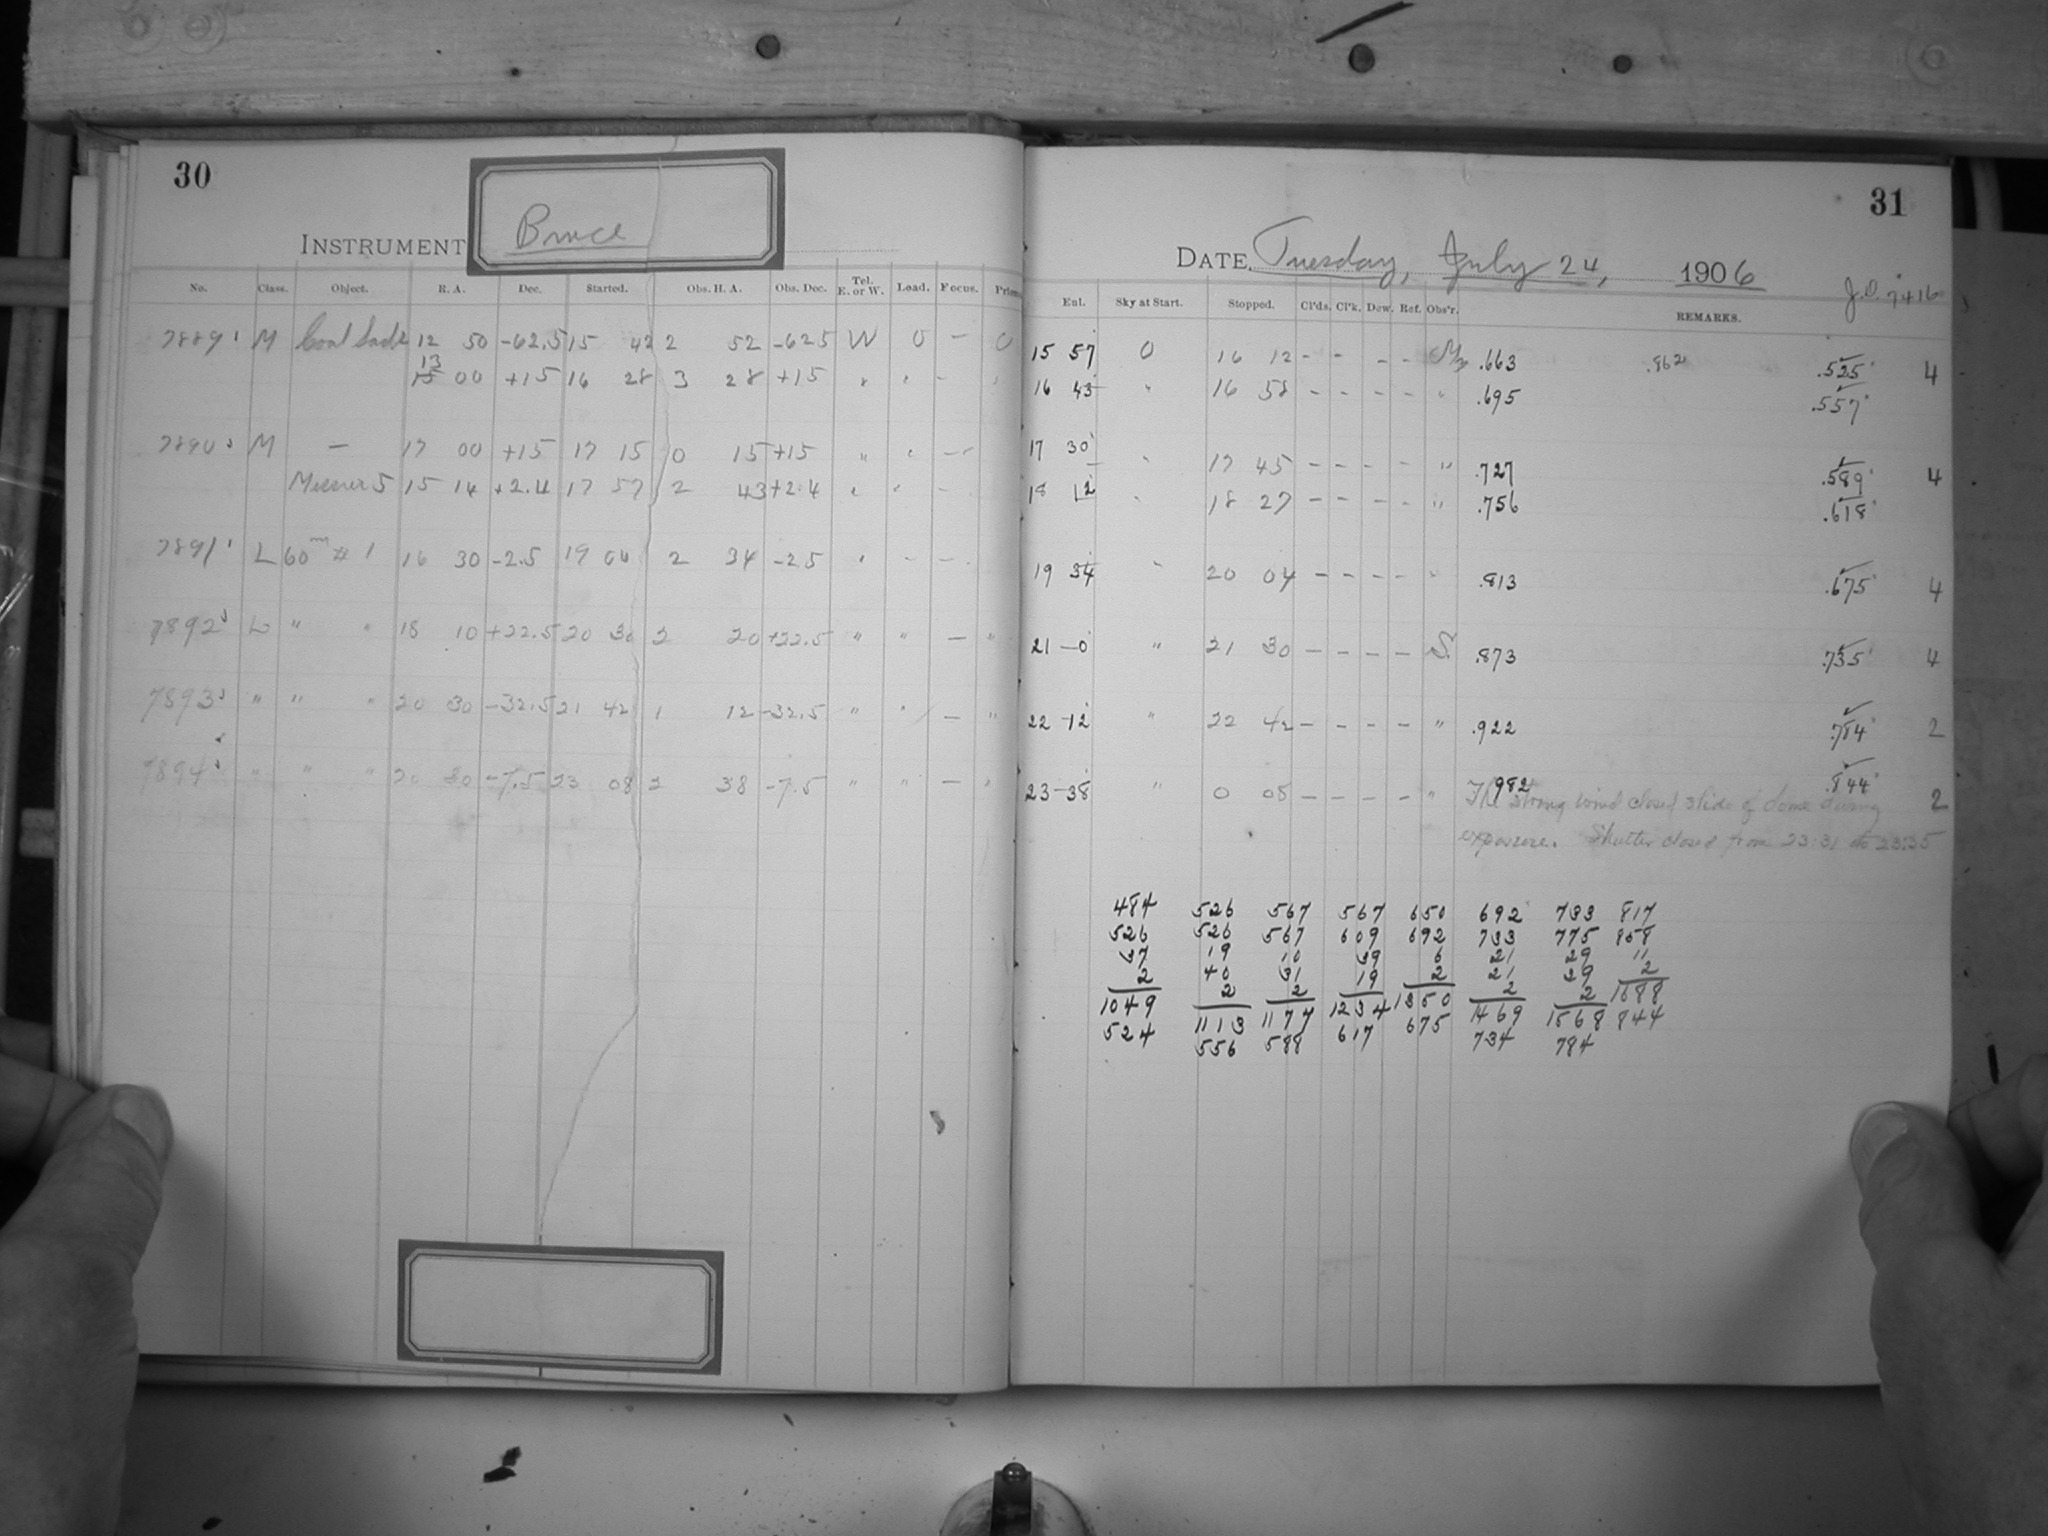 30
INSTRUMENT Bruce
No. Class. Object. R. A. Dec. Started. Obs. H. A. Obs. Dec. Tel. E. or W. Load. Focus. Prism
7889 M Coal Sack 12 50 -62.5 15 42 2 52 -62.5 W 0 - 0
13
15 00 +15 16 28 3 28 +15 " " - "
7890 M - 17 00 +15 17 15 0 15 +15 " " - "
Messier 5 15 14 +2.4 17 57 2 43 +2.4 " " -
7891 L 60m # 1 16 30 -2.5 19 04 2 34 -2.5 " - -
7892 L " " 18 10 +22.5 20 30 2 20 +22.5 " " - "
7893 " " " 20 30 -32.5 21 42 1 12 -32.5 " " - "
7894 " " " 20 30 -7.5 23 08 2 38 -7.5 " " - "
31
DATE, Tuesday, July 24, 1906
J.D. 7416
Ent. Sky at Start. Stopped. Cl'ds. Cl'k. Dew. Ref. Obs'r. REMARKS.
15 57 0 16 12 - - - - .663 .862 .525 4
16 43 " 16 58 - - - - " .695 .557
17 30 " 17 45 - - - - " .727 .589 4
18 12 " 18 27 - - - - " .756 .618
19 34 " 20 04 - - - - " .813 .675 4
21 -0 " 21 30 - - - - S. .873 .735 4
22 -12 " 22 42 - - - - " .922 .784 2
23 -38 " 0 08 - - - - " .982 .844 2
The strong wind closed slide of dome during
exposure. Shutter closed from 23:31 to 23:35
484 526 567 567 650 692 733 817
526 526 567 609 692 733 775 858
37 19 10 39 6 21 29 11
2 40 31 19 2 21 29 2
2 2 2 2
1049 1113 1177 1234 1350 1469 1568 1688
524 556 588 617 675 734 784 844